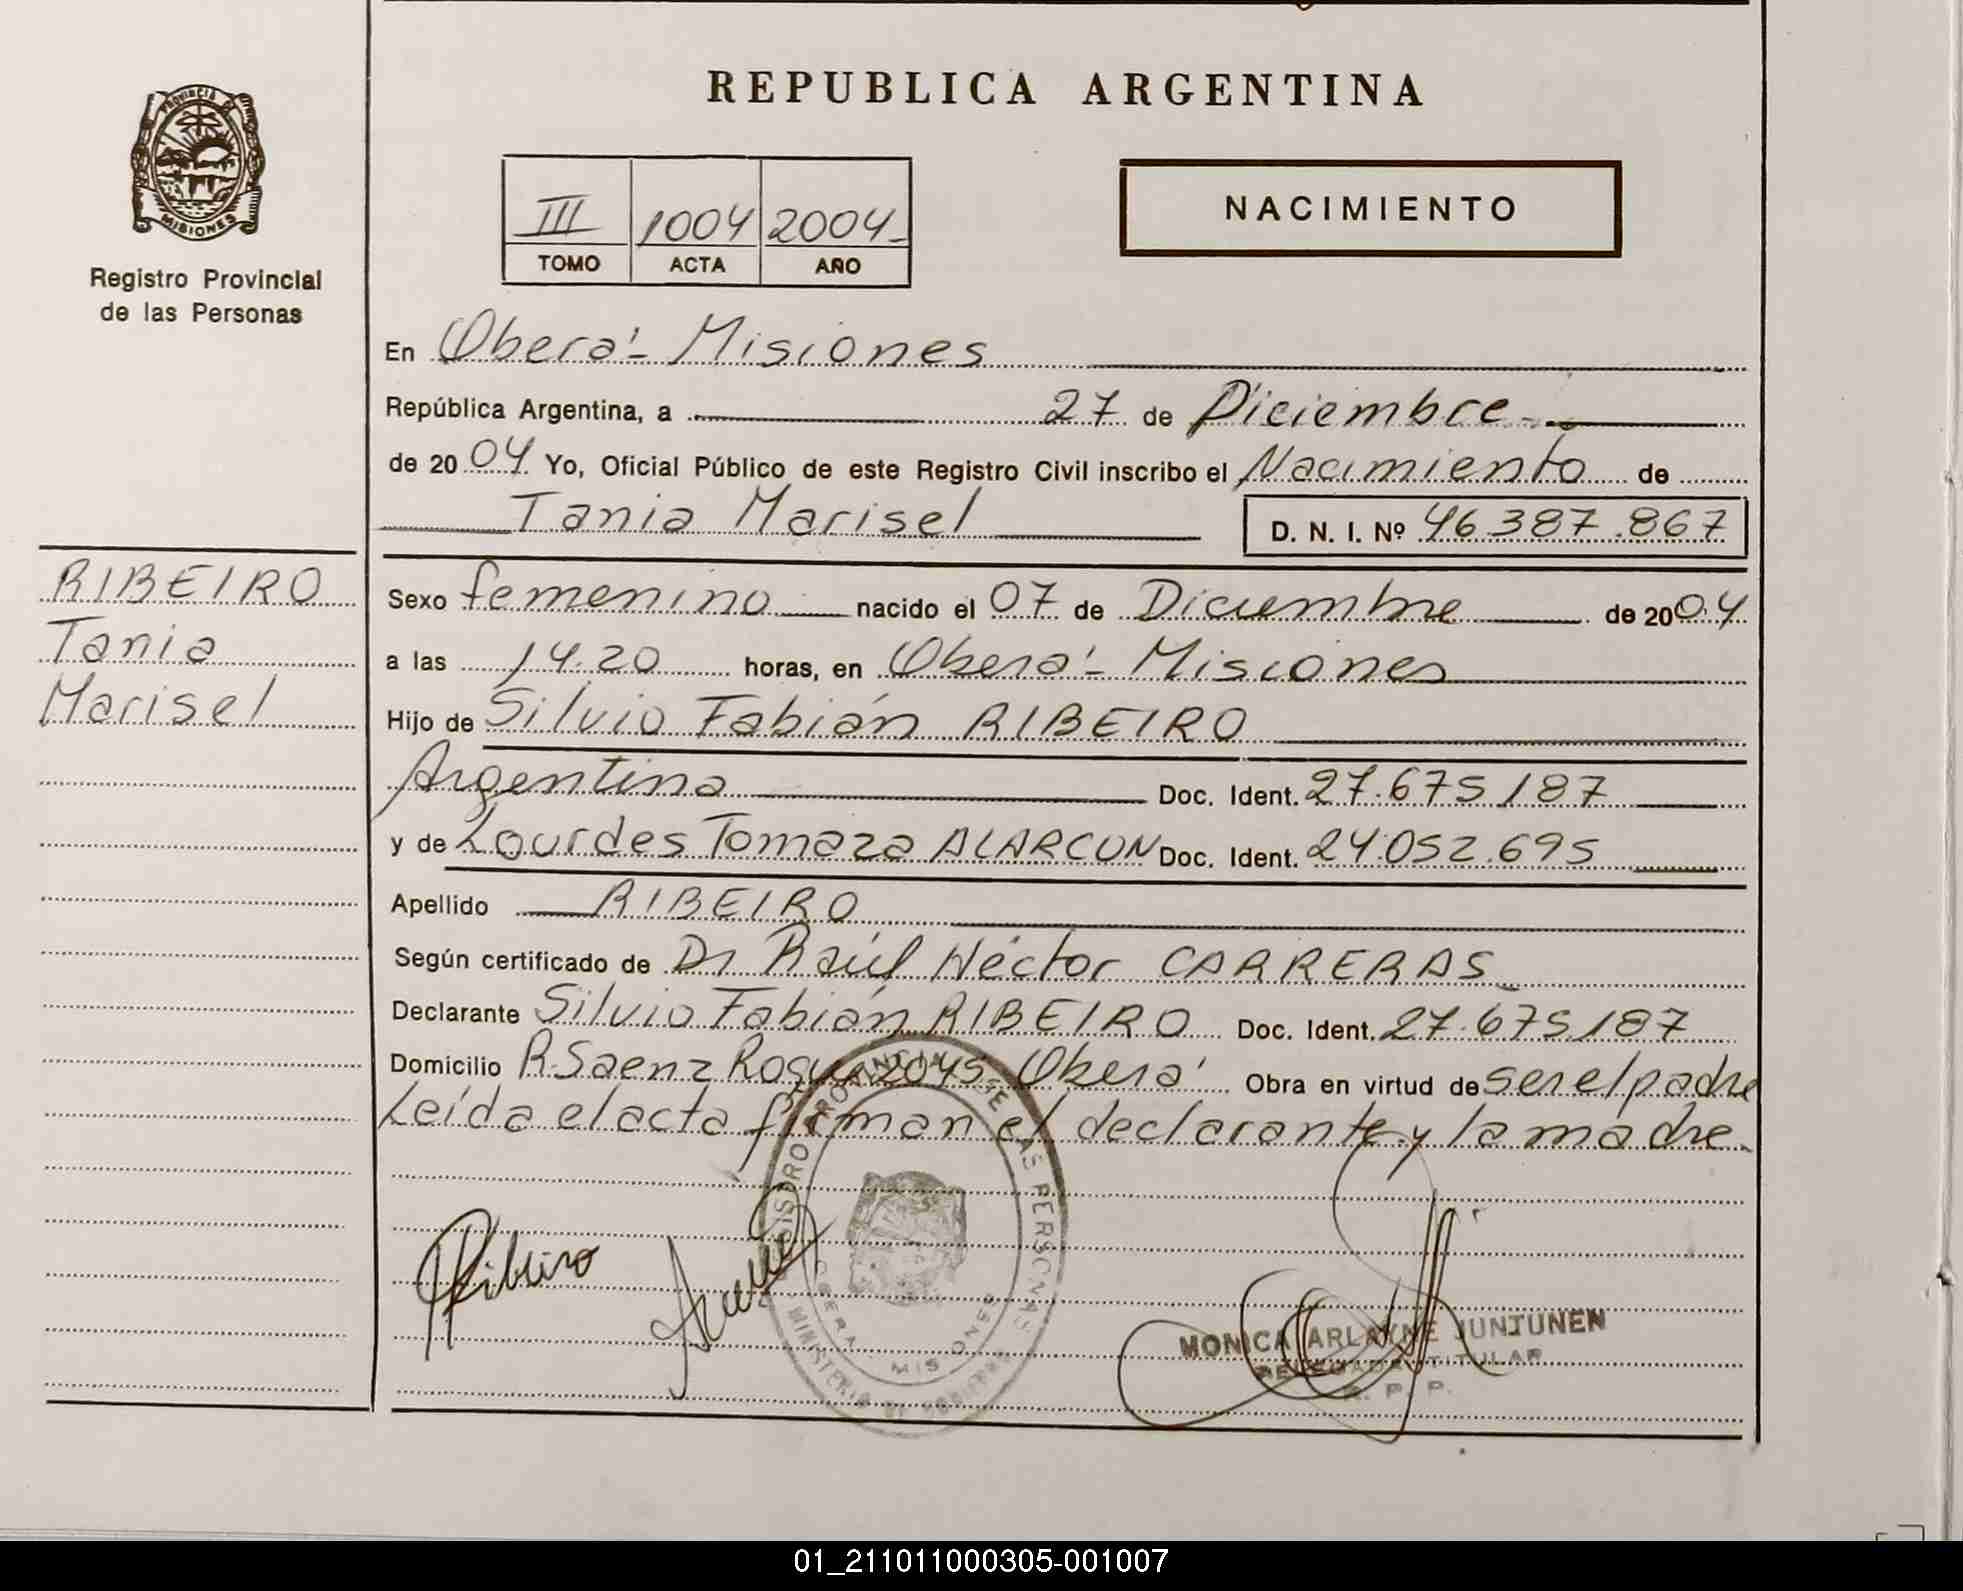 REPUBLICA ARGENTINA
PROVINCIA DE
MISIONES
Registro Provincial
de las Personas
III 1004 2004
TOMO ACTA AÑO
NACIMIENTO
En Oberá - Misiones
República Argentina, a 27 de Diciembre
de 2004 Yo, Oficial Público de este Registro Civil inscribo el Nacimiento de
Tania Marisel D. N. I. Nº 46.387.867
RIBEIRO
Tania
Marisel
Sexo femenino nacido el 07 de Diciembre de 2004
a las 14.20 horas, en Oberá - Misiones
Hijo de Silvio Fabián RIBEIRO
Argentina Doc. Ident. 27.675.187
y de Lourdes Tomaza ALARCON Doc. Ident. 24.052.695
Apellido RIBEIRO
Según certificado de Dr Raúl Héctor CARRERAS
Declarante Silvio Fabián RIBEIRO Doc. Ident. 27.675.187
Domicilio R. Saenz Roque 2045 Oberá Obra en virtud de ser el padre
Leída el acta firman el declarante y la madre.
Ribeiro
REGISTRO PROVINCIAL DE LAS PERSONAS
OBERA MISIONES
MINISTERIO DE GOBIERNO
MONICA ARLAYNE JUNTUNEN
DELEGADA TITULAR
R. P. P.
01_211011000305-001007